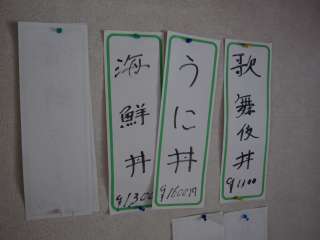 海鮮丼
¥1300
うに丼
¥1600円
歌舞伎丼
¥1100